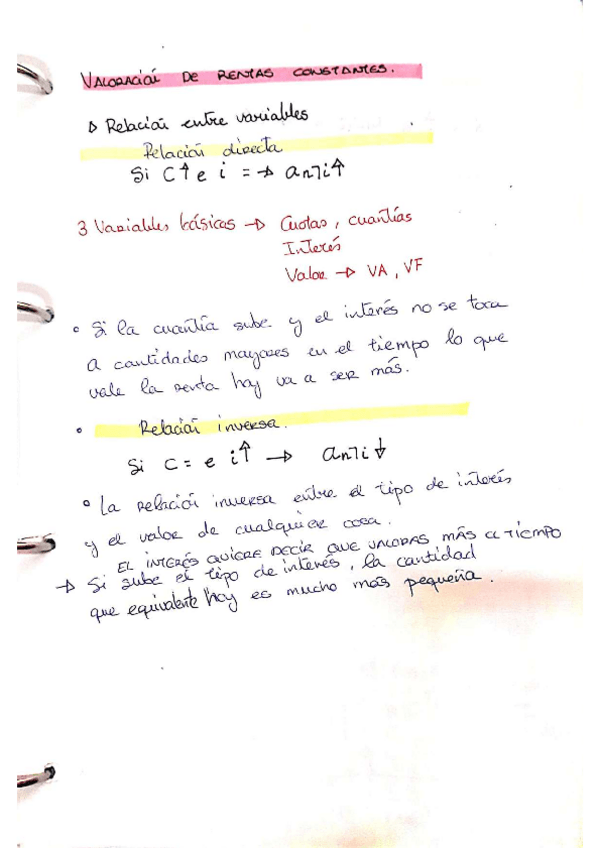 VALORACIÓN DE RENTAS CONSTANTES.
▷ Relación entre variables
Relación directa
Si C↑ e i = → an⌉i↑
3 Variables básicas → Cuotas, cuantías
Interés
Valor → VA, VF
• Si la cuantía sube y el interés no se toca
a cantidades mayores en el tiempo lo que
vale la renta hay va a ser más.
• Relación inversa.
Si C = e i↑ → an⌉i↓
• La relación inversa entre el tipo de interés
y el valor de cualquier cosa.
EL INTERÉS QUIERE DECIR QUE VALORAS MÁS EL TIEMPO
→ Si sube el tipo de interés, la cantidad
que equivalente hoy es mucho más pequeña.